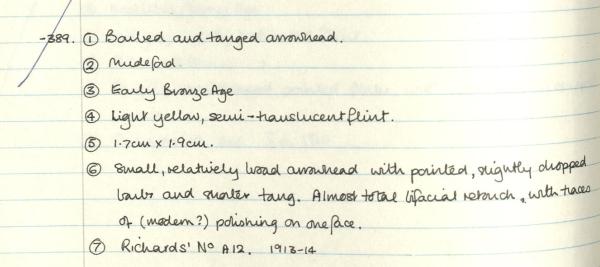 -389. ① Barbed and tanged arrowhead.
② Mudeford.
③ Early Bronze Age
④ Light yellow, semi-translucent flint.
⑤ 1.7cm x 1.9cm.
⑥ Small, relatively broad arrowhead with pointed, slightly chopped
barbs and shorter tang. Almost total bifacial retouch, with traces
of (modern?) polishing on one face.
⑦ Richards' No A12. 1913-14